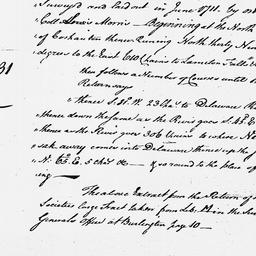 Survey'd and laid out in June 1711. by
Coll Lewis Morris — Beginning at the North
of Coshaities thence Running North
degrees to the East 610 Chains to Lameton Falls
31
then follows a Number of Courses until
Returnsay
thence S. 23 Chs to Delaware
thence down the same as the River goes
thence as the River goes 306 Chains to where
sak away comes into Delaware thence up the
N. 63 E. 5 chs &c — & so round to the place of
ing —
The above Extract from the Return of
Societies large Tract taken from Lib. in the
Generals office at Burlington page 10 —